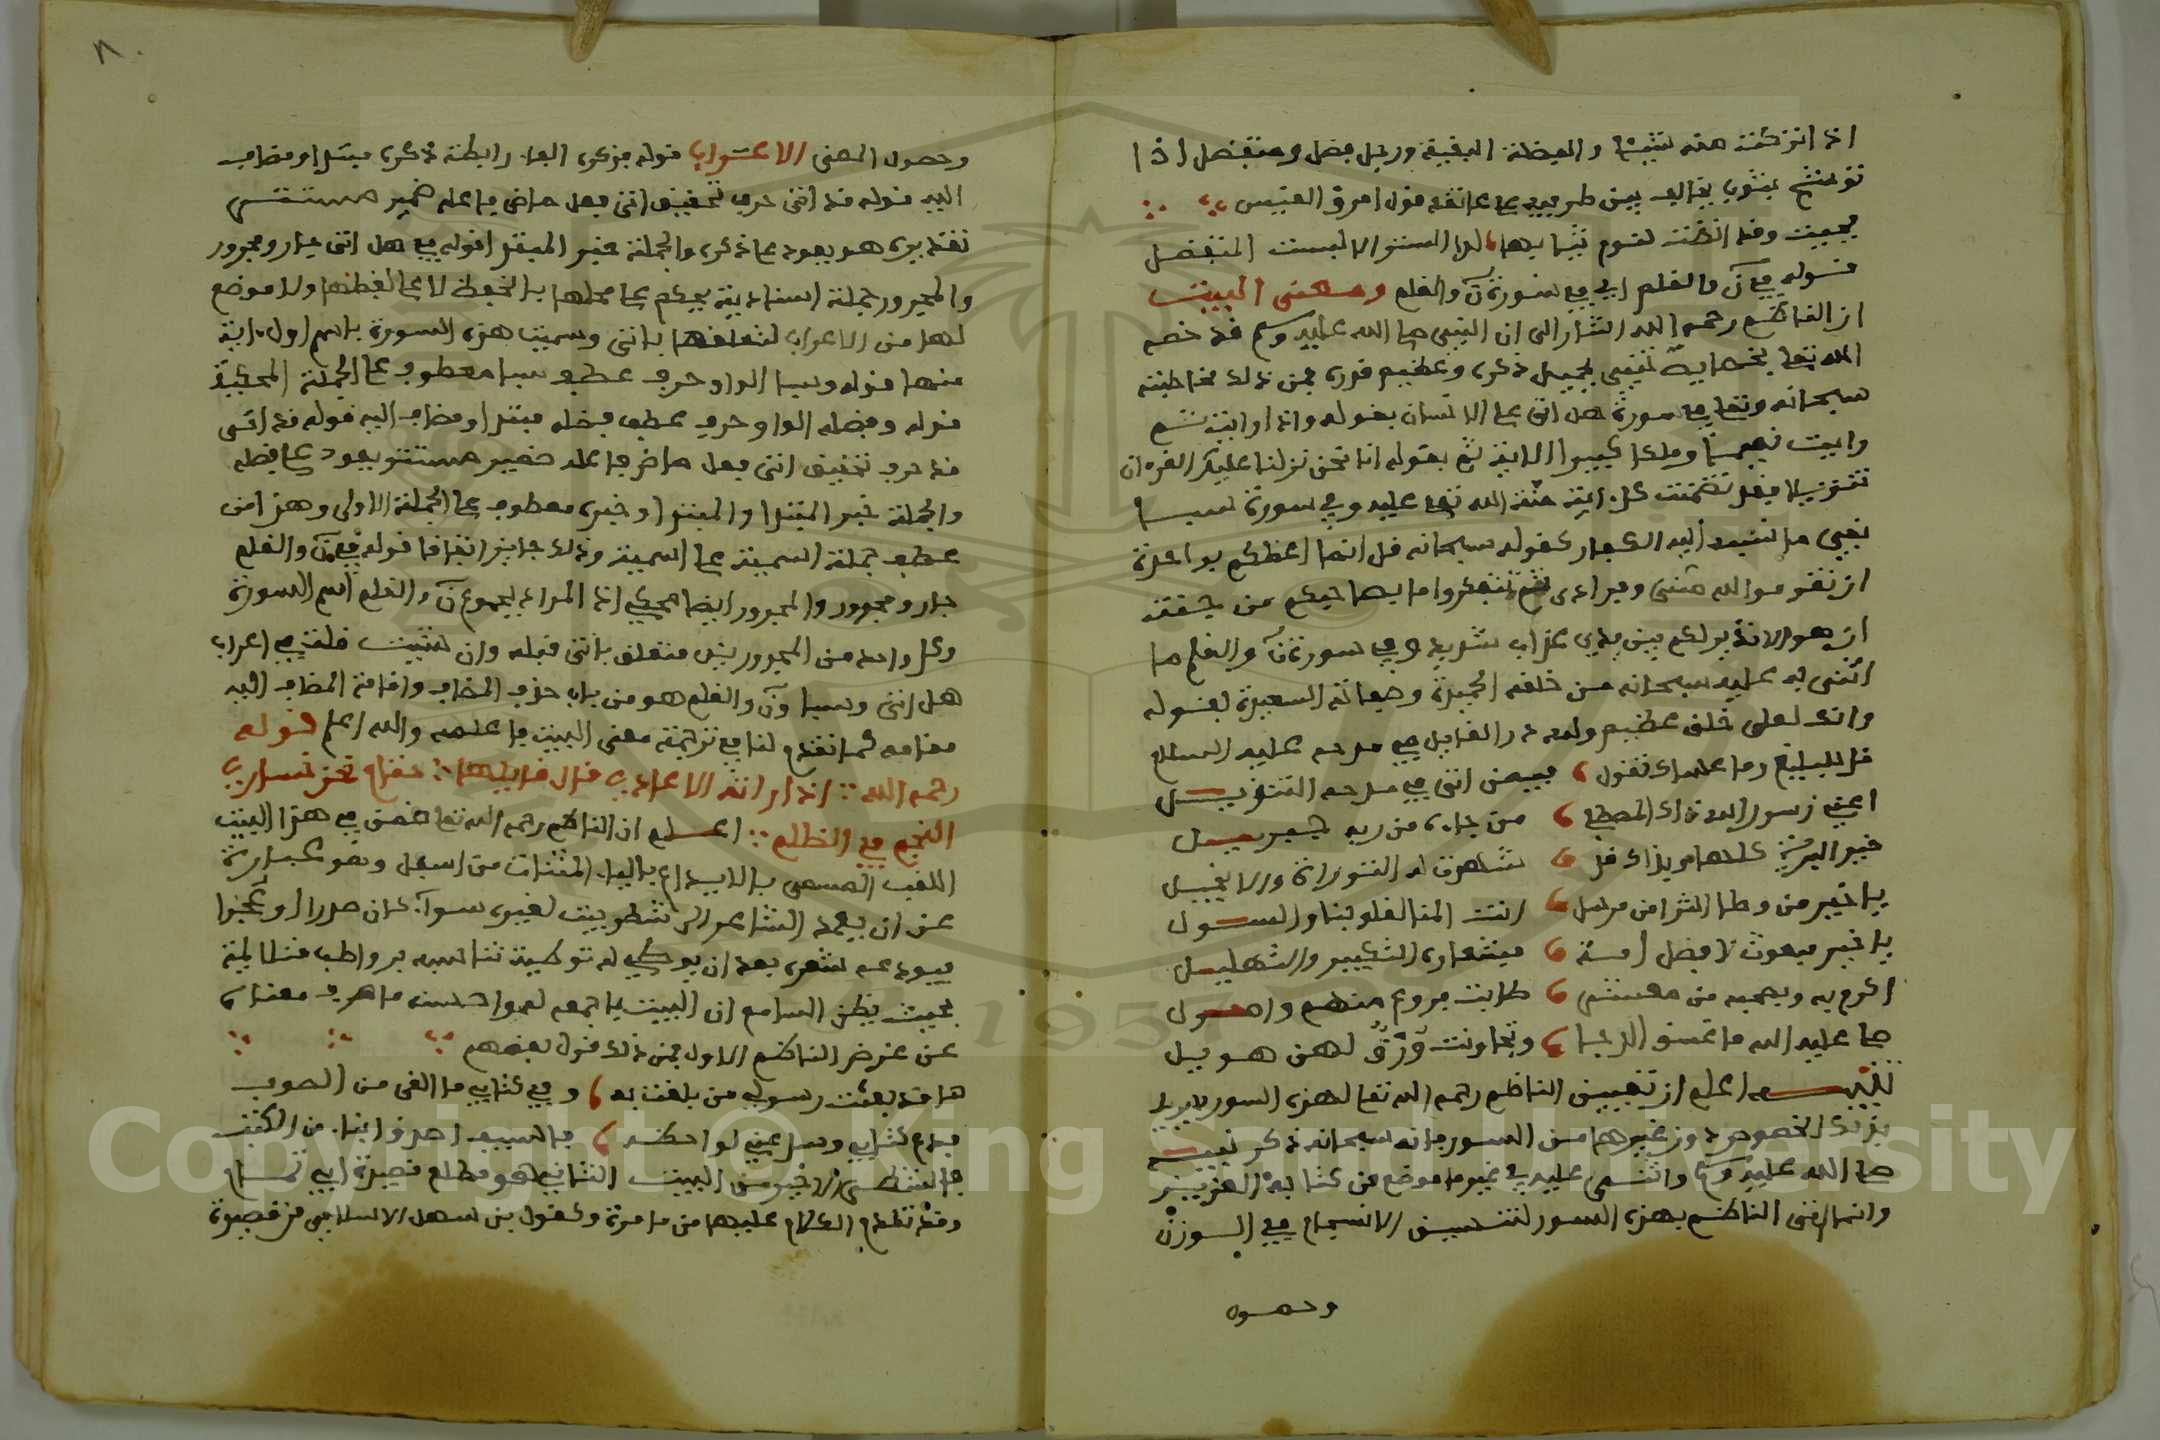 اذا تركت منه شيئا والفضلة البقية ورجل فضل ومتفضل اذا
توشح بثوب يخالف بين طرفيه على عاتقه قول امرؤ القيس
فجيت وقد انضت لنوم ثيابها لدا الستر الا لبست المتفضل
قوله في ن والقلم اي في سورة ن والقلم ومعنى البيت
ان الناظم رحمه الله اشار الى ان النبي صلى الله عليه وسلم قد خصه
الله تعالى بخصايص تنبي بجميل ذكره وعظيم قدره فمن ذلك مخاطبته
سبحانه وتعالى في سورة هل اتى على الانسان بقوله واذا رايت ثم
رايت نعيما وملكا كبيرا الاية ثم بقوله انا نحن نزلنا عليك القرءان
تنزيلا فقد تضمنت كل اية منة الله تعالى عليه وفي سورة سبا
نفي ما نسبه اليه الكفار كقوله سبحانه قل انما اعظكم بواحدة
ان تقوموا لله مثنى وفرادى ثم تتفكروا ما بصاحبكم من جنة
ان هو الا نذير لكم بين يدي عذاب شديد وفي سورة ن والقلم ما
اثنى به عليه سبحانه من خلقه الجميلة وصفاته السعيدة بقوله
وانك لعلى خلق عظيم ولله در القايل في مدحه عليه السلام
قل للبليغ وما عساك تقول فبمن اتى في مدحه التنزيل
اعني رسول الله ذاك المصطفى من جاءه من ربه جبريل
خير البرية كلها وبذاك قل شهدت له التوراة والانجيل
يا خير من وطا الثرا من مرسل انت المنا لقلوبنا والسول
يا خير مبعوث لافضل امة فشعاره التكبير والتهليل
اكرم به وبصحبه من معشر طابت فروع منهم واصول
صلى عليه الله ما غسق الدجا وتجاوبت ورق لهن هويل
تنبيه اعلم ان تعيين الناظم رحمه الله تعالى لهذه السور
بذلك الخصوص دون غيرها من السور فانه سبحانه ذكر نبيه
صلى الله عليه وسلم واثنى عليه في غير ما موضع من كتابه العزيز
وانما اتى الناظم بهذه السور لتحسين الانسجام في الوزن
وحصول
٨
وحصول المعنى الاعراب قوله فذكره الفاء رابطة ذكره مبتدا ومضاف
اليه قوله قد اتى حرف تحقيق اتى فعل ماض فاعله ضمير مستتر
تقديره هو يعود على ذكره والجملة خبر المبتدا قوله في هل اتى جار ومجرور
والمجرور جملة اسنادية يحكم على محلها بالخفض لا على لفظها ولا موضع
لها من الاعراب لتعلقها باتى وسميت هذه السورة باسم اول اية
منها قوله وسبا الواو حرف عطف سبا معطوف على الجملة المحكية
قوله وفضله الواو حرف عطف فضله مبتدا ومضاف اليه قوله قد اتى
قد حرف تحقيق اتى فعل ماض فاعله ضمير مستتر يعود على فضله
والجملة خبر المبتدا والمبتدا وخبره معطوف على الجملة الاولى وهذا من
عطف جملة اسمية على اسمية وذلك جايز اتفاقا قوله في ن والقلم
جار ومجرور والمجرور ايضا محكي اذا المراد بمجموع ن والقلم اسم السورة
وكل واحد من المجرورين متعلق باتى قبله وان شيت قلت في اعراب
هل اتى وسبا ون والقلم هو من باب حذف المضاف واقامة المضاف اليه
مقامه كما تقدم لنا في ترجمة معنى البيت فاعلمه والله اعلم قوله
رحمه الله اذا راته الاعادي قال قايلها حتام نحن نساري
النجم في الظلم اعلم ان الناظم رحمه الله تعالى ضمن في هذا البيت
اللقب المسمى بالايداع بالياء المثنات من اسفل وهو عبارة
عن ان يعمد الشاعر الى شطر بيت لغيره سواء كان صدرا او عجزا
فيودعه شعره بعد ان يوطي له توطية تناسبه بروابط متلايمة
بحيث يظن السامع ان البيت باجمعه له واحسنه ما صرف معناه
عن غرض الناظم الاول فمن ذلك قول بعضهم
ها قد بعثت رسولي من بلغت به وفي كتابي ما القى من الوصب
فدع كتابي وسل عني لواحظه فالسيف اصدق انباء من الكتب
فالشطر الاخير من البيت الثاني هو مطلع قصيدة ابي تمام
وقد تقدم الكلام عليها من ما مرة وكقول بن سهل الاسلامي من قصيدة